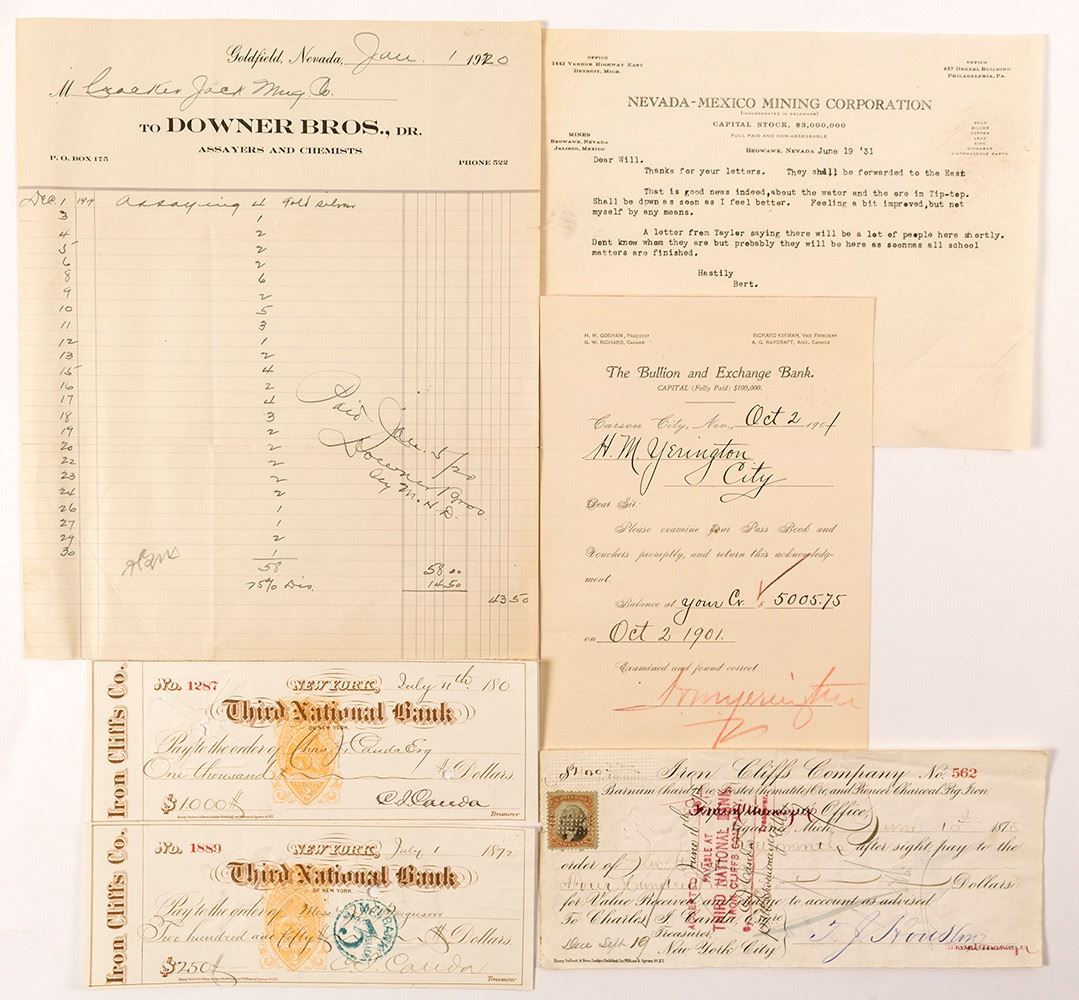 Goldfield, Nevada, Jan 1 1920
M Cracker Jack Mng. Co.
TO DOWNER BROS., DR.
ASSAYERS AND CHEMISTS
P. O. BOX 175 PHONE 522
Dec. 1 1919 Assaying 4 gold silver
3 1
4 2
5 2
6 2
8 6
9 2
10 5
11 3
12 1
13 2
15 4
16 2
17 4
18 3
19 2
20 2
22 2
23 2
24 2
26 1
27 1
29 2
30 1
58 58 00
25% Dis. 14.50
43 50
Paid Jan. 5/20
Downer Bros.
by M.H.D.
OFFICE
1442 VERNOR HIGHWAY EAST
DETROIT, MICH.
OFFICE
437 DREXEL BUILDING
PHILADELPHIA, PA.
NEVADA-MEXICO MINING CORPORATION
(INCORPORATED IN DELAWARE)
CAPITAL STOCK, $3,000,000
FULL PAID AND NON-ASSESSABLE
MINES
BEOWAWE, NEVADA
JALISCO, MEXICO
GOLD
SILVER
COPPER
LEAD
ZINC
CINNABAR
DIATOMACEOUS EARTH
BEOWAWE, NEVADA June 19 '31
Dear Will.
Thanks for your letters. They shall be forwarded to the East
That is good news indeed,about the water and the ore in Tip-top.
Shall be down as soon as I feel better. Feeling a bit improved,but not
myself by any means.
A letter from Taylor saying there will be a lot of people here shortly.
Dont know whom they are but probably they will be here as soonnas all school
matters are finished.
Hastily
Bert.
H. M. GORHAM, PRESIDENT
G. W. RICHARD, CASHIER
RICHARD KIRMAN, VICE PRESIDENT
A. G. RAYCRAFT, ASST. CASHIER
The Bullion and Exchange Bank.
CAPITAL (Fully Paid) $100,000.
Carson City, Nev., Oct 2 1901
H. M Yerington
City
Dear Sir:
Please examine your Pass Book and
Vouchers promptly, and return this acknowledg-
ment.
Balance at your Cr. $ 5005.75
on Oct 2 1901.
Examined and found correct
Iron Cliffs Co.
No. 1287 NEW YORK, July 11th 18
Third National Bank
OF NEW YORK
Pay to the order of Chas. J. Canda Esq
One thousand Dollars
$1000 C J Canda
Treasurer
Iron Cliffs Co.
No. 1889 NEW YORK, July 1 187
Third National Bank
OF NEW YORK
Pay to the order of Mess Ferguson
Two hundred and fifty Dollars
$250 C J Canda
Treasurer
Iron Cliffs Company No. 562
Barnum Hard Ore, Foster Hematite Ore, and Pioneer Charcoal Pig Iron
General Manager's Office,
Mich., June 187
months after sight pay to the
order of
Four Hundred Dollars
for Value Received and charge to account as advised
To Charles J. Canda,
Treasurer,
New York City
Due Sept 19
General Manager
ACCEPTED June
PAYABLE AT
THIRD NATIONAL BANK
IRON CLIFFS COMPANY